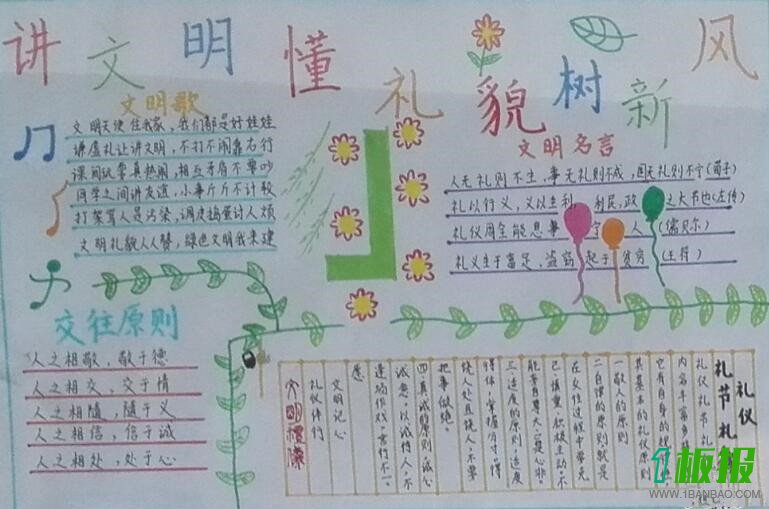 讲文明懂礼貌树新风
文明歌
文明天使住我家，我们都是好娃娃
谦虚礼让讲文明，不打不闹靠右行
课间玩耍真热闹，相互矛盾不要吵
同学之间讲友谊，小事斤斤不计较
打架骂人是污染，调皮捣蛋讨人烦
文明礼貌人人赞，绿色文明我来建
文明名言
人无礼则不生，事无礼则不成，国无礼则不宁(荀子)
礼以行义，义以生利，利民，政之大节也(左传)
礼仪周全能息事宁人(儒贝尔)
礼义生于富足，盗窃起于贫穷(王符)
交往原则
人之相敬，敬于德
人之相交，交于情
人之相随，随于义
人之相信，信于诚
人之相处，处于心
礼仪
礼节礼
礼仪礼节礼
内容丰富多
它有自身的规
其基本的礼仪原则
一敬人的原则
二自律的原则就是
在交往过程中要克
己慎重，积极主动，不
能妄自尊大，口是心非。
三适度的原则，适度
得体，掌握分寸，得
饶人处且饶人，不要
把事做绝。
四真诚的原则诚心
诚意，以诚待人，不
逢场作戏，言行不一。
愿
文明记心
礼仪伴行
文明礼
1板报
WWW.1BANBAO.COM